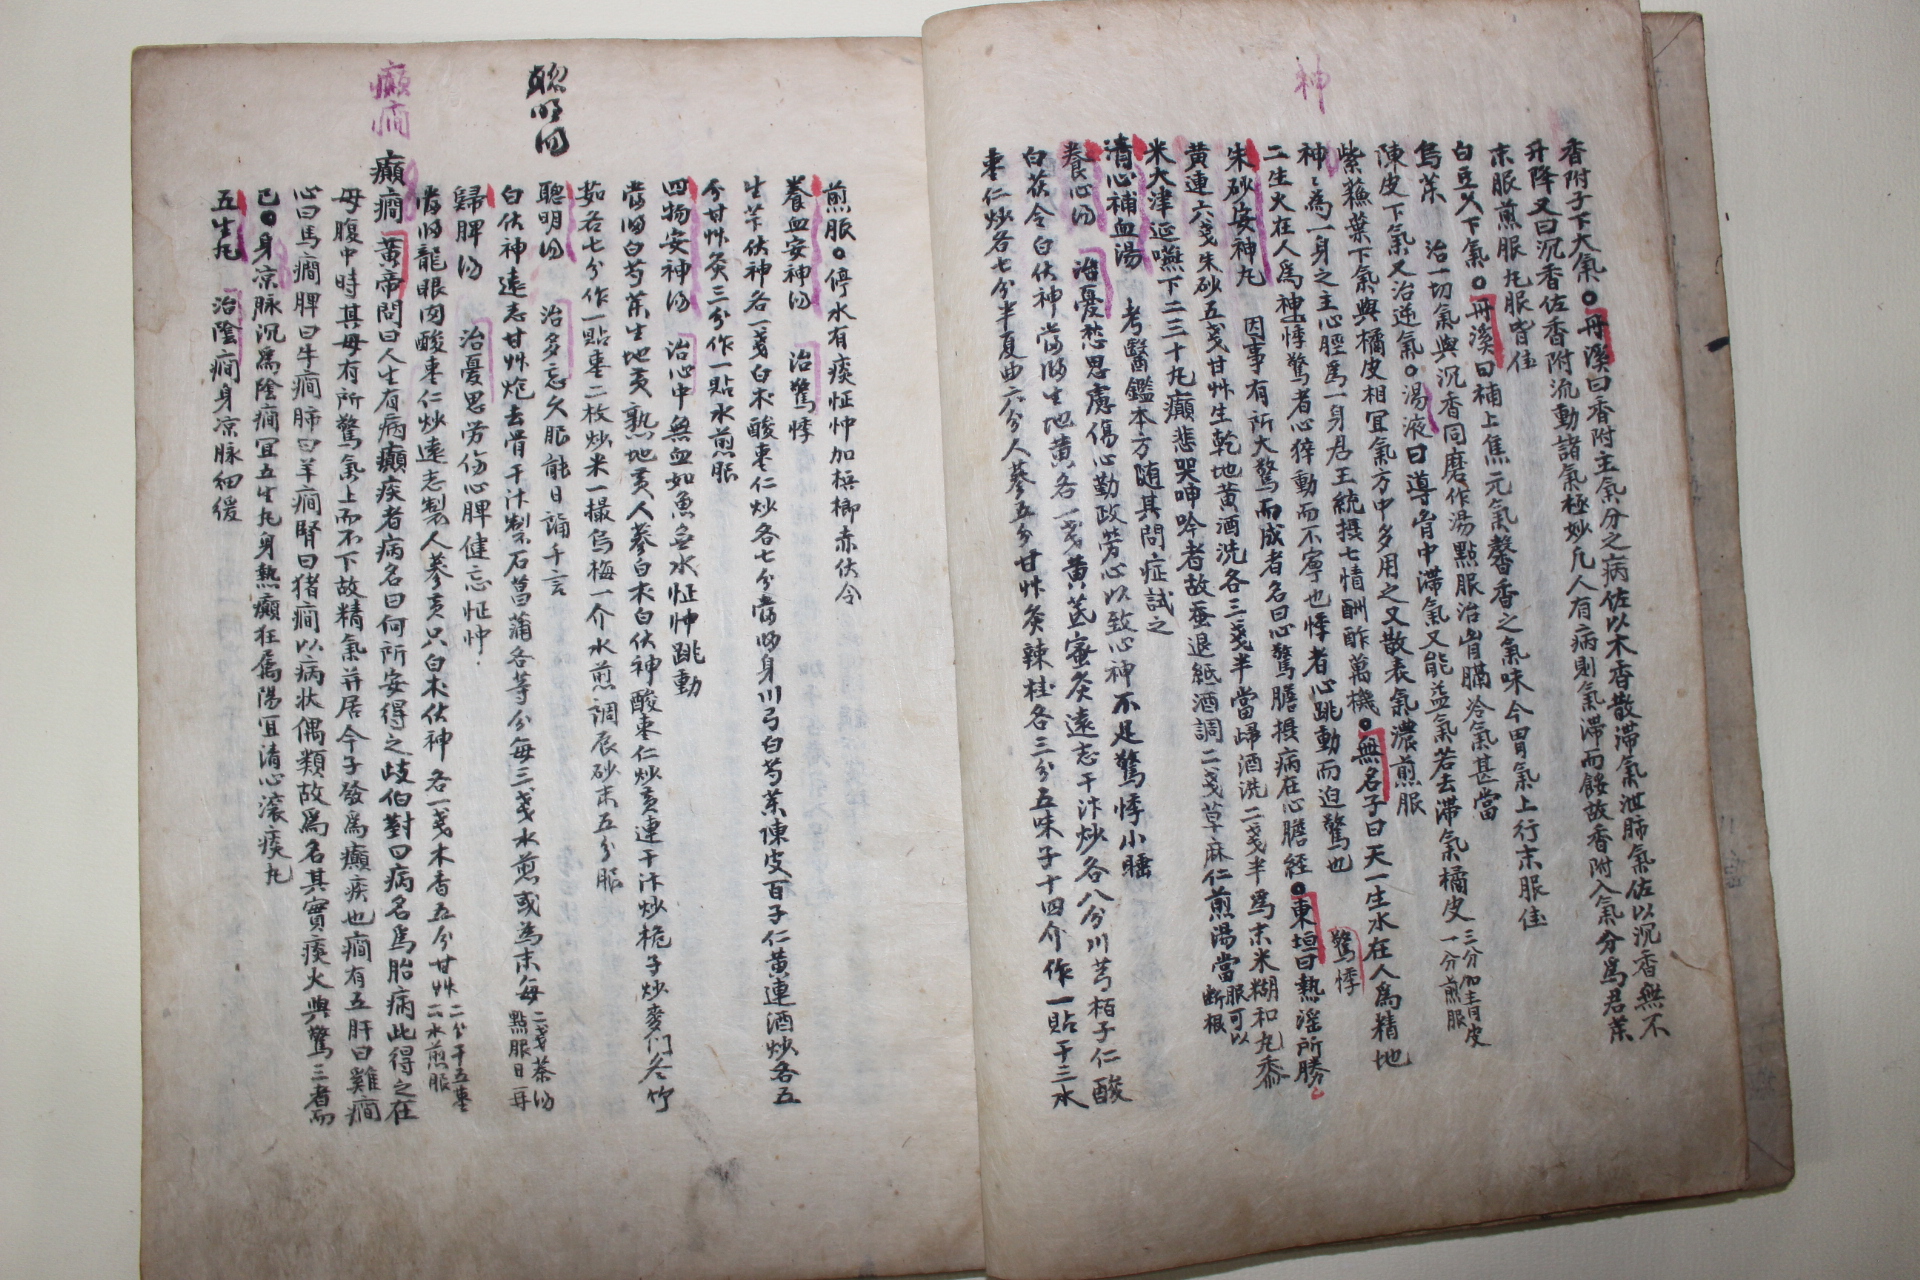 神
香附子下大氣○丹溪曰香附主氣分之病佐以木香散滯氣泄肺氣佐以沉香無不
升降又曰沉香佐香附流動諸氣極妙凡人有病則氣滯而餒故香附入氣分爲君藥
末服煎服丸服皆佳
白豆久下氣○丹溪曰補上焦元氣馨香之氣味令胃氣上行末服佳
烏茶 治一切氣與沉香同磨作湯點服治胷膈冷氣甚當
陳皮下氣又治逆氣○湯液曰導胷中滯氣又能益氣若去滯氣橘皮三分加靑皮一分煎服
紫蘓葉下氣與橘皮相宜氣方中多用之又散表氣濃煎服
神神爲一身之主心脛爲一身君王統攝七情酬酢萬機○無名子曰天一生水在人爲精地
二生火在人爲神 驚悸 悸驚者心猝動而不寧也悸者心跳動而迫驚也
因事有所大驚而成者名曰心驚膽攝病在心膽經○東垣曰熱淫所勝
朱砂安神丸
黃連六戔朱砂五戔甘艸生乾地黃酒洗各三戔半當歸酒洗二戔半爲末米糊和丸黍
米大津延嚥下二三十丸癲悲哭呻吟者故蚕退紙酒調二戔草麻仁煎湯當服可以斷根
淸心補血湯 考醫鑑本方随其問症試之
養心湯 治憂愁思慮傷心勤政勞心以致心神不足驚悸小睡
白茯令白伏神當歸生地黃各一戔黃芪蜜灸遠志干汁炒各八分川芎栢子仁酸
枣仁炒各七分半夏曲六分人蔘五分甘艸灸辣桂各三分五味子十四介作一貼干三水
煎服○停水有痰怔忡加梹榔赤伏令
養血安神湯 治驚悸
生芐伏神各一戔白朮酸枣仁炒各七分當歸身川弓白芍藥陳皮百子仁黃連酒炒各五
分甘艸灸三分作一貼水煎服
四物安神湯 治心中無血如魚無水怔忡跳動
當歸白芍藥生地黃熟地黃人蔘白朮白伏神酸枣仁炒黃連干汁炒梔子炒麥门冬竹
茹各七分作一貼枣二枚炒米一撮烏梅一介水煎調辰砂末五分服
聰明湯
聰明湯 治多忘久服能日誦千言
白伏神遠志甘艸炮去骨干汁制石菖蒲各等分每三戔水煎或為末每二戔茶湯點服日再
歸脾湯 治憂思労傷心脾健忘怔忡
當歸龍眼肉酸枣仁炒遠志製人蔘黃芪白朮伏神各一戔木香五分甘艸二分干五枣二水煎服
癲癎
癲癎 黃帝問曰人生有病癲疾者病名曰何所安得之歧伯對曰病名爲胎病此得之在
母腹中時其母有所驚氣上而不下故精氣幷居今子發爲癲疾也癎有五肝曰雞癎
心曰馬癎脾曰牛癎肺曰羊癎腎曰猪癎以病状偶類故爲名其實痰火與驚三者而
已○身凉脉沉爲陰癎宜五生丸身熱癲狂属陽宜淸心滾痰丸
五生丸 治陰癎身凉脉細緩